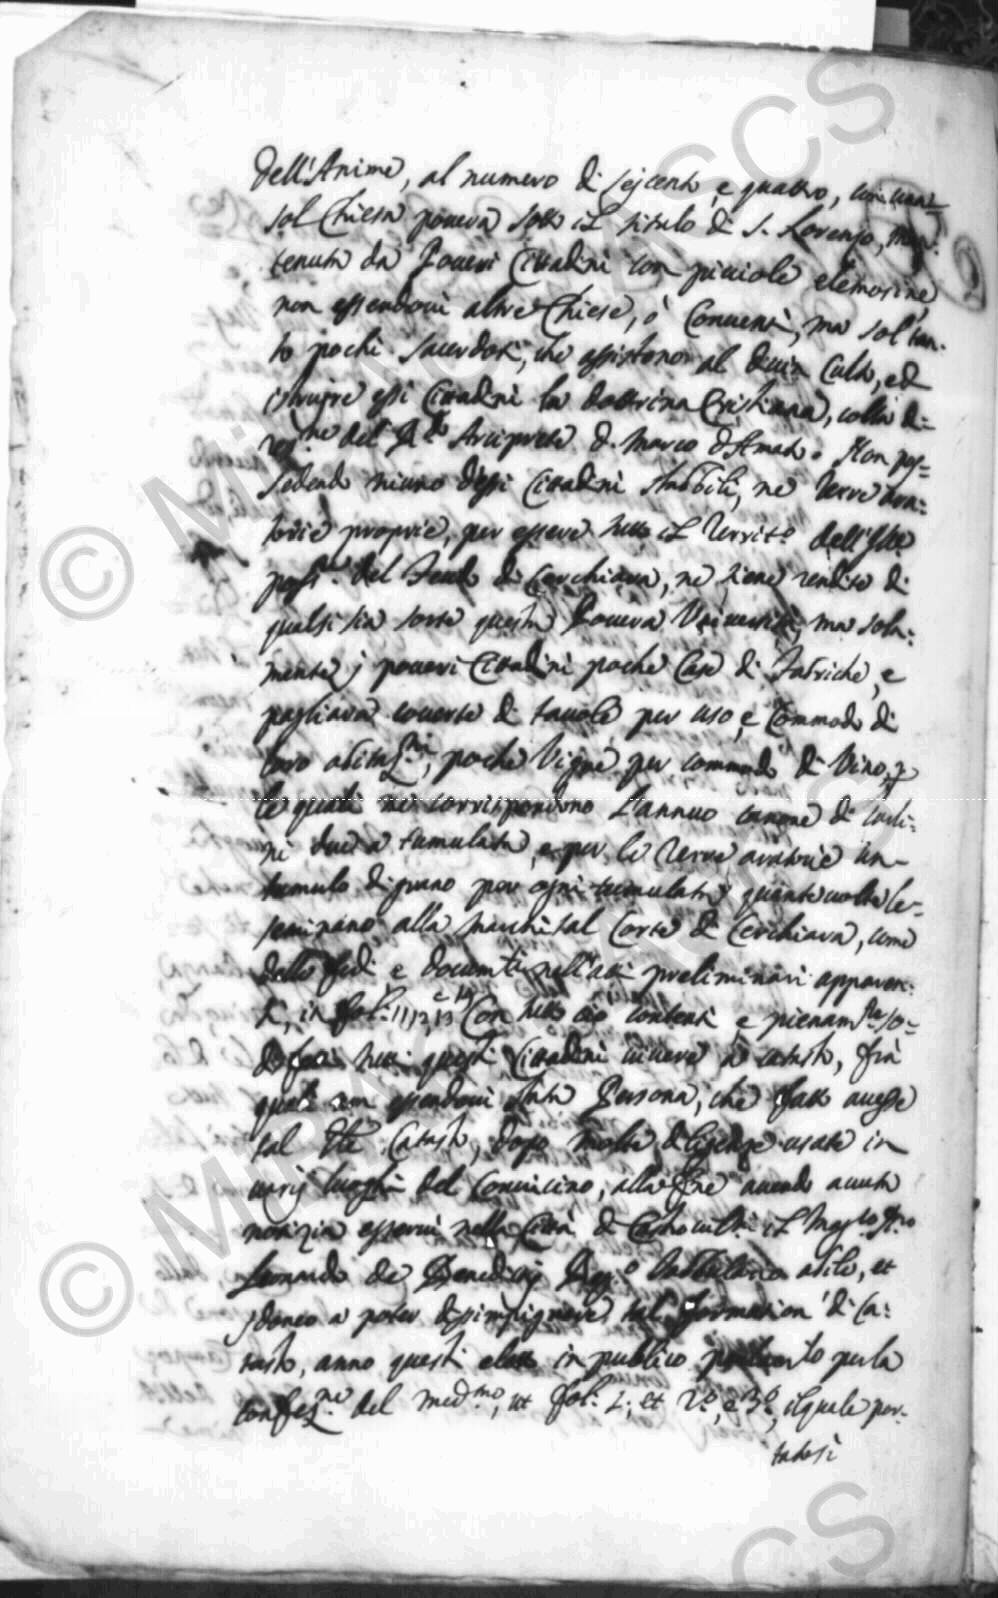 dell'Anime, al numero di seicento, e quattro, con una
sol Chiesa povera sotto il titulo di S. Lorenzo, man:
tenuta da Poveri Cittadini con picciole elemosine,
non essendovi altre Chiese, ò Conventi, ma sol tan:
to pochi Sacerdoti, che assistono al divin Culto, ed
istruire essi Cittadini la dottrina Cristiana, colla di:
rez:ne del R.do Arciprete D. Marco d'Amato. Non pos=
sedendo niuno d'essi Cittadini stabili, né Terre ara=
torie proprie, per essere tutto il Territ.o dell'Ill.e
Poss.r del Feudo di Cerchiara, né tiene rendite di
qualsisia sorte questa Povera Università, ma sola:
mente j poveri Cittadini poche Case di Fabriche, e
pagliara coverte di tavole, per uso, e Commodo di
loro abitaz.ni, poche Vigne per commodo di Vino,
le quali ne corrispondono l'annuo canone di carli:
ni due a tumulata, e per le Terre aratorie un
tumulo di grano per ogni tumulata quante volte le
seminano alla Marchital Corte di Cerchiara, come
dalle fedi e docum.ti nell'atti preliminari apparen:
ti, in fol: 11, 12, 13 e 14 Con tutto ciò contenti e pienam.te so=
disfatti tutti questi Cittadini vivere à catasto, frà
quali non essendovi stata Persona, che fatto avesse
tal Catasto, dopo molte diligenze usate in
varij luoghi del Convicino, alla fine avendo avuta
notizia esservi nella Città di Castrovill:i il Mag.co
Leonardo de Benedictis Reg.o Tabbulario abile, et
jdoneo a poter disimpignare tal formazion' di Ca:
tasto, anno questi eletto in publico parlam.to per la
confez.ne del med.mo, ut fol: 1; et 2.o, e 3.o, il quale por:
tatosi